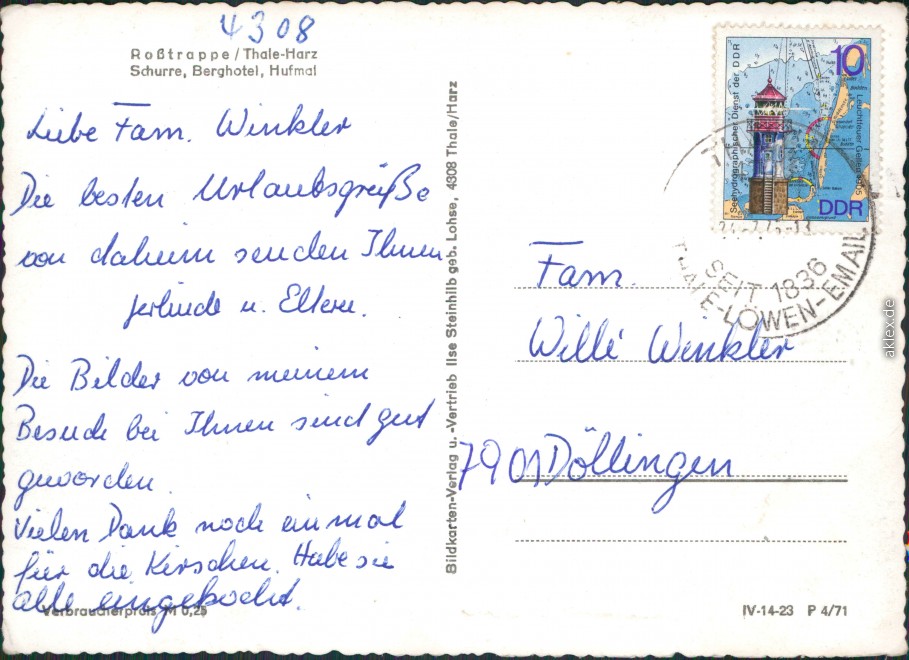 4308
Roßtrappe / Thale-Harz
Schurre, Berghotel, Hufmal
Liebe Fam. Winkler
Die besten Urlaubsgrüße
von daheim senden Ihnen
Gerlinde u. Eltern.
Die Bilder von meinem
Besuch bei Ihnen sind gut
geworden.
Vielen Dank noch einmal
für die Kirschen. Habe sie
alle eingekocht.
Verbraucherpreis M 0,25
Bildkarten-Verlag u. -Vertrieb Ilse Steinhilb geb. Lohse, 4308 Thale/Harz
10
Seehydrographischer Dienst der DDR
Leuchtfeuer Gellen
DDR
SEIT 1836
THALE-LÖWEN-EMAIL
Fam.
Willi Winkler
7901 Döllingen
IV-14-23 P 4/71
aklex.de